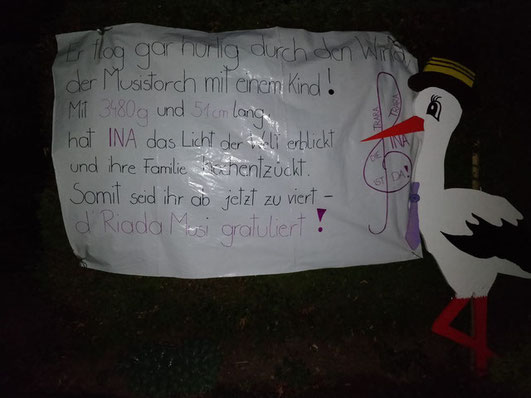 Er flog gar hurtig durch den Wind
der Musistorch mit einem Kind!
Mit 3480g und 51cm lang
hat INA das Licht der Welt erblickt
und ihre Familie hochentzückt.
Somit seid ihr ab jetzt zu viert –
d'Riada Musi gratuliert!
TRARA
TRARA
DIE
INA
IST
DA!